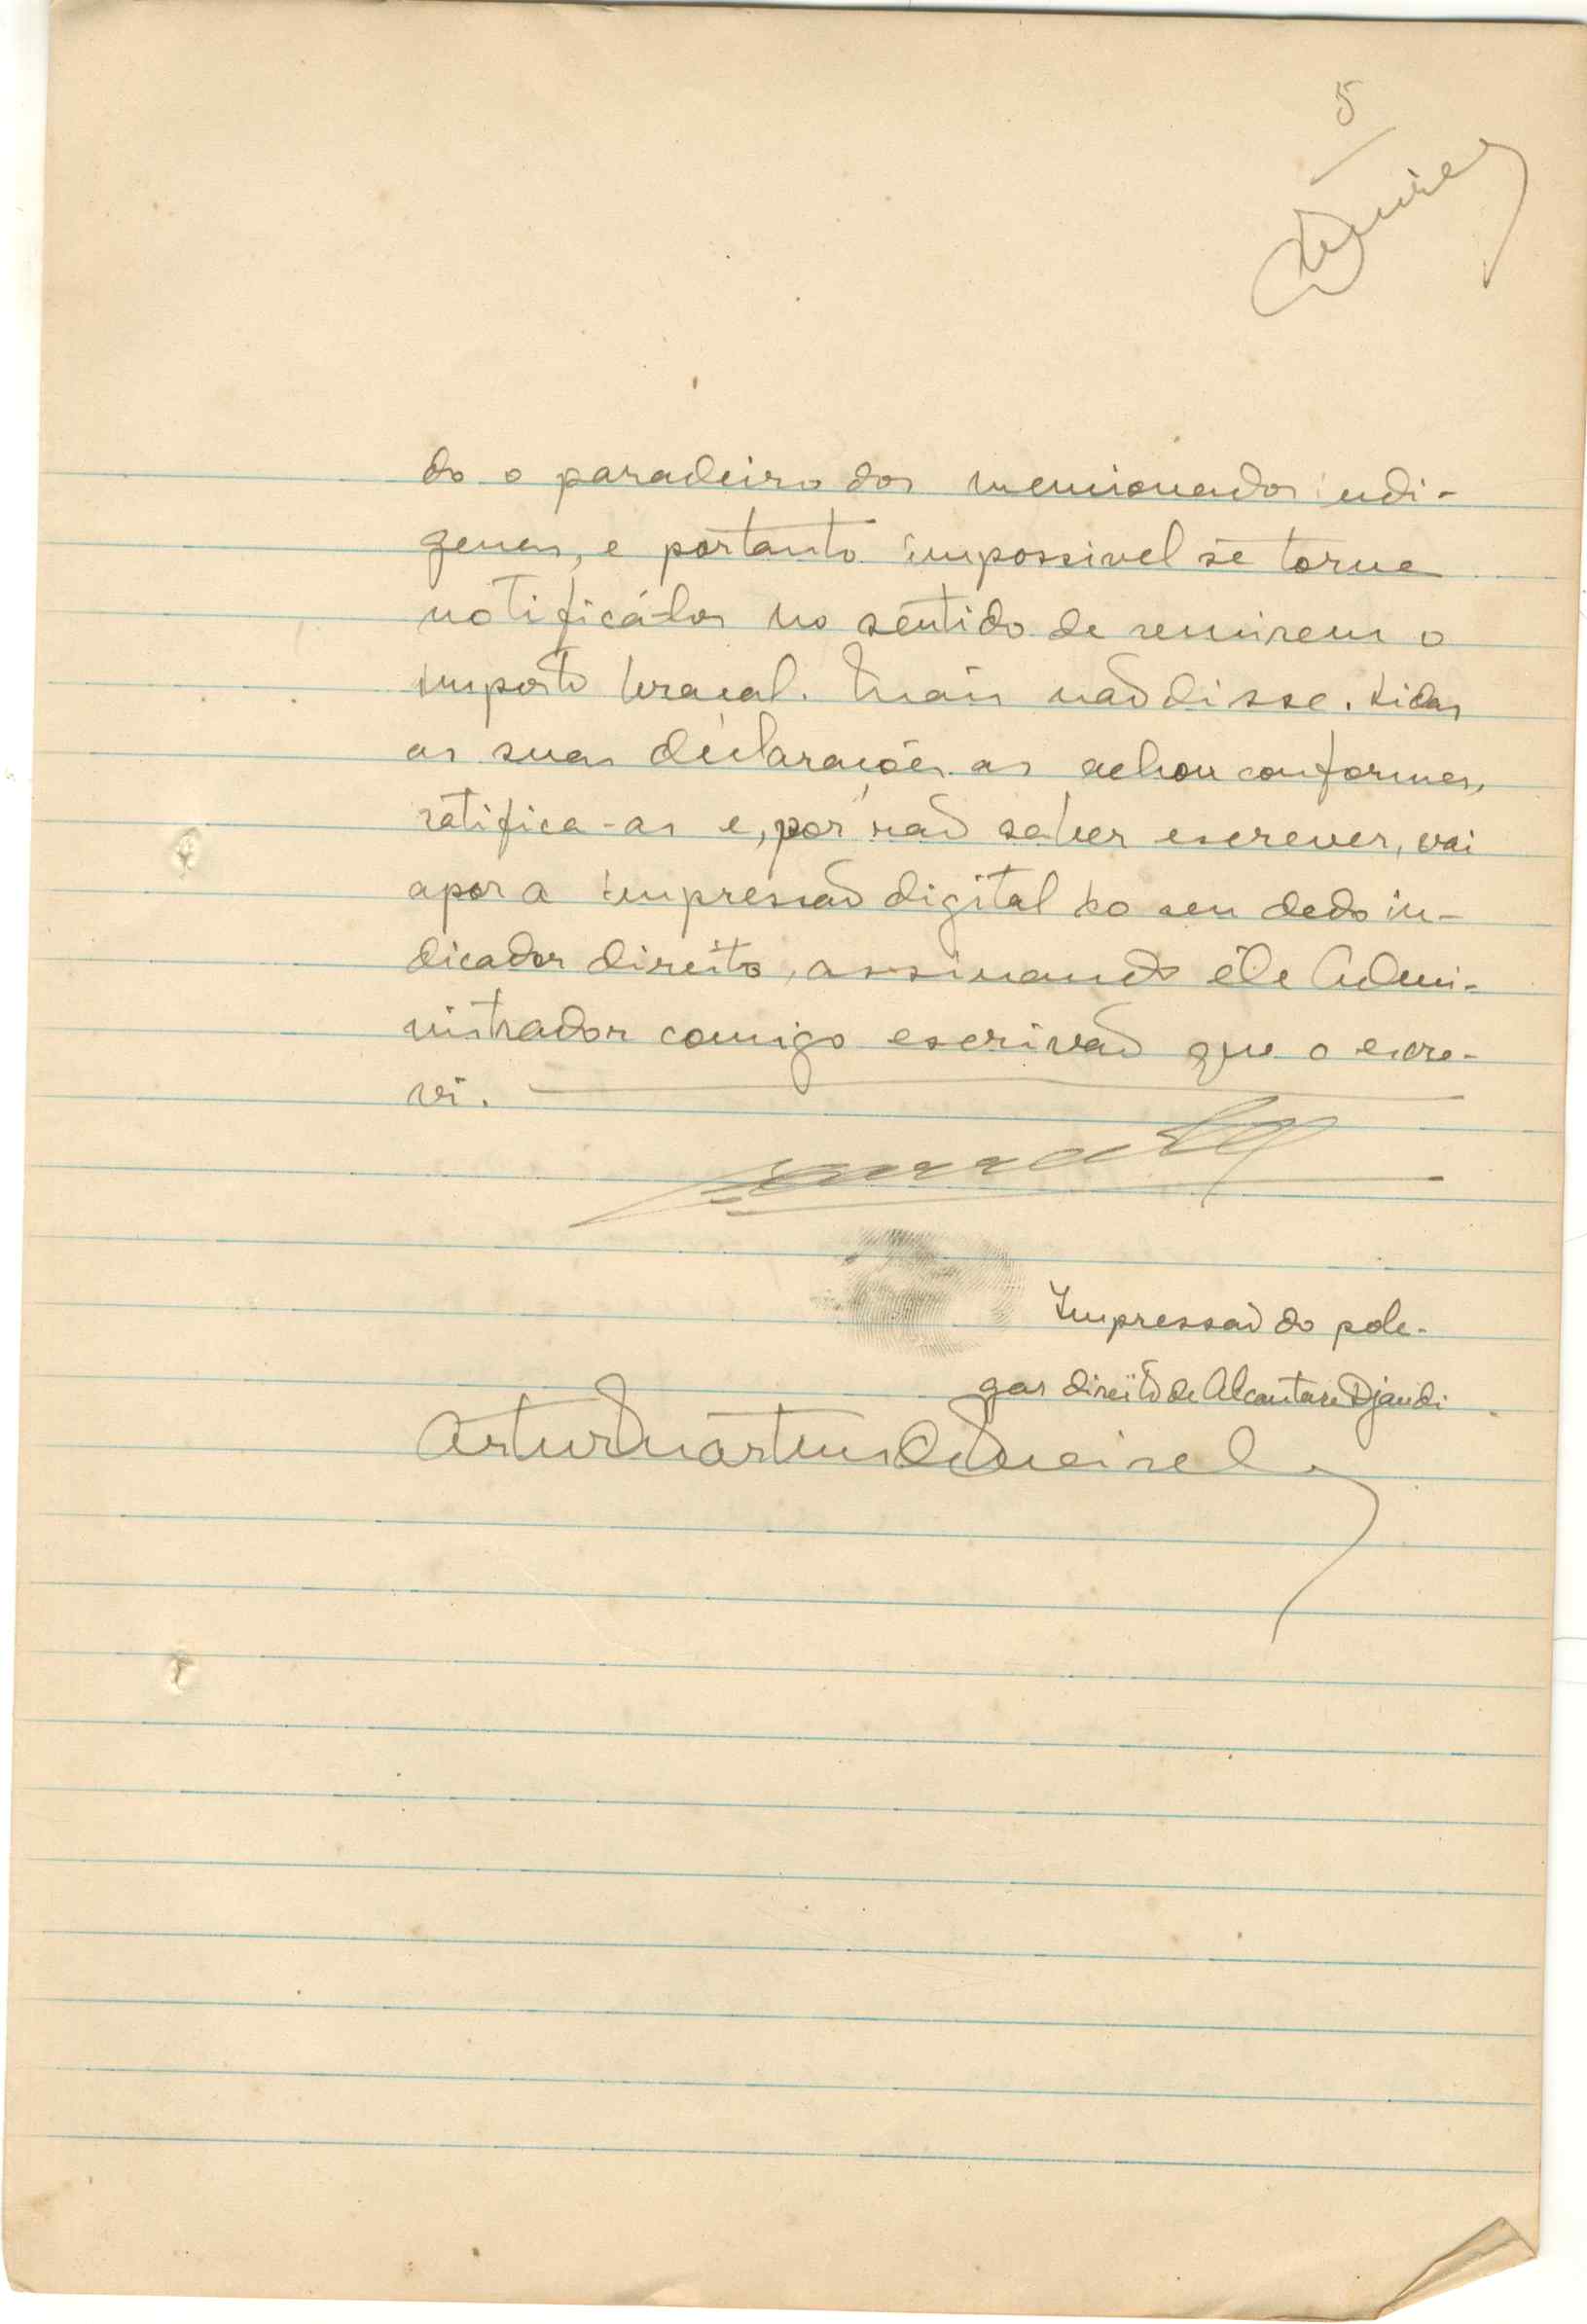 5
do o paradeiro dos mencionados indi-
genas, e portanto impossivel se torna
notificá-los no sentido de remirem o
imposto braçal. Mais não disse. Lidas
as suas declarações as achou conformes,
ratifica-as e, por não saber escrever, vai
apor a impressão digital do seu dedo in-
dicador direito, assinando êle Admi-
nistrador comigo escrivão que o escre-
vi.
Impressão do pole-
gar direito de Alcantara Djandi
Artur Martins de Meireles